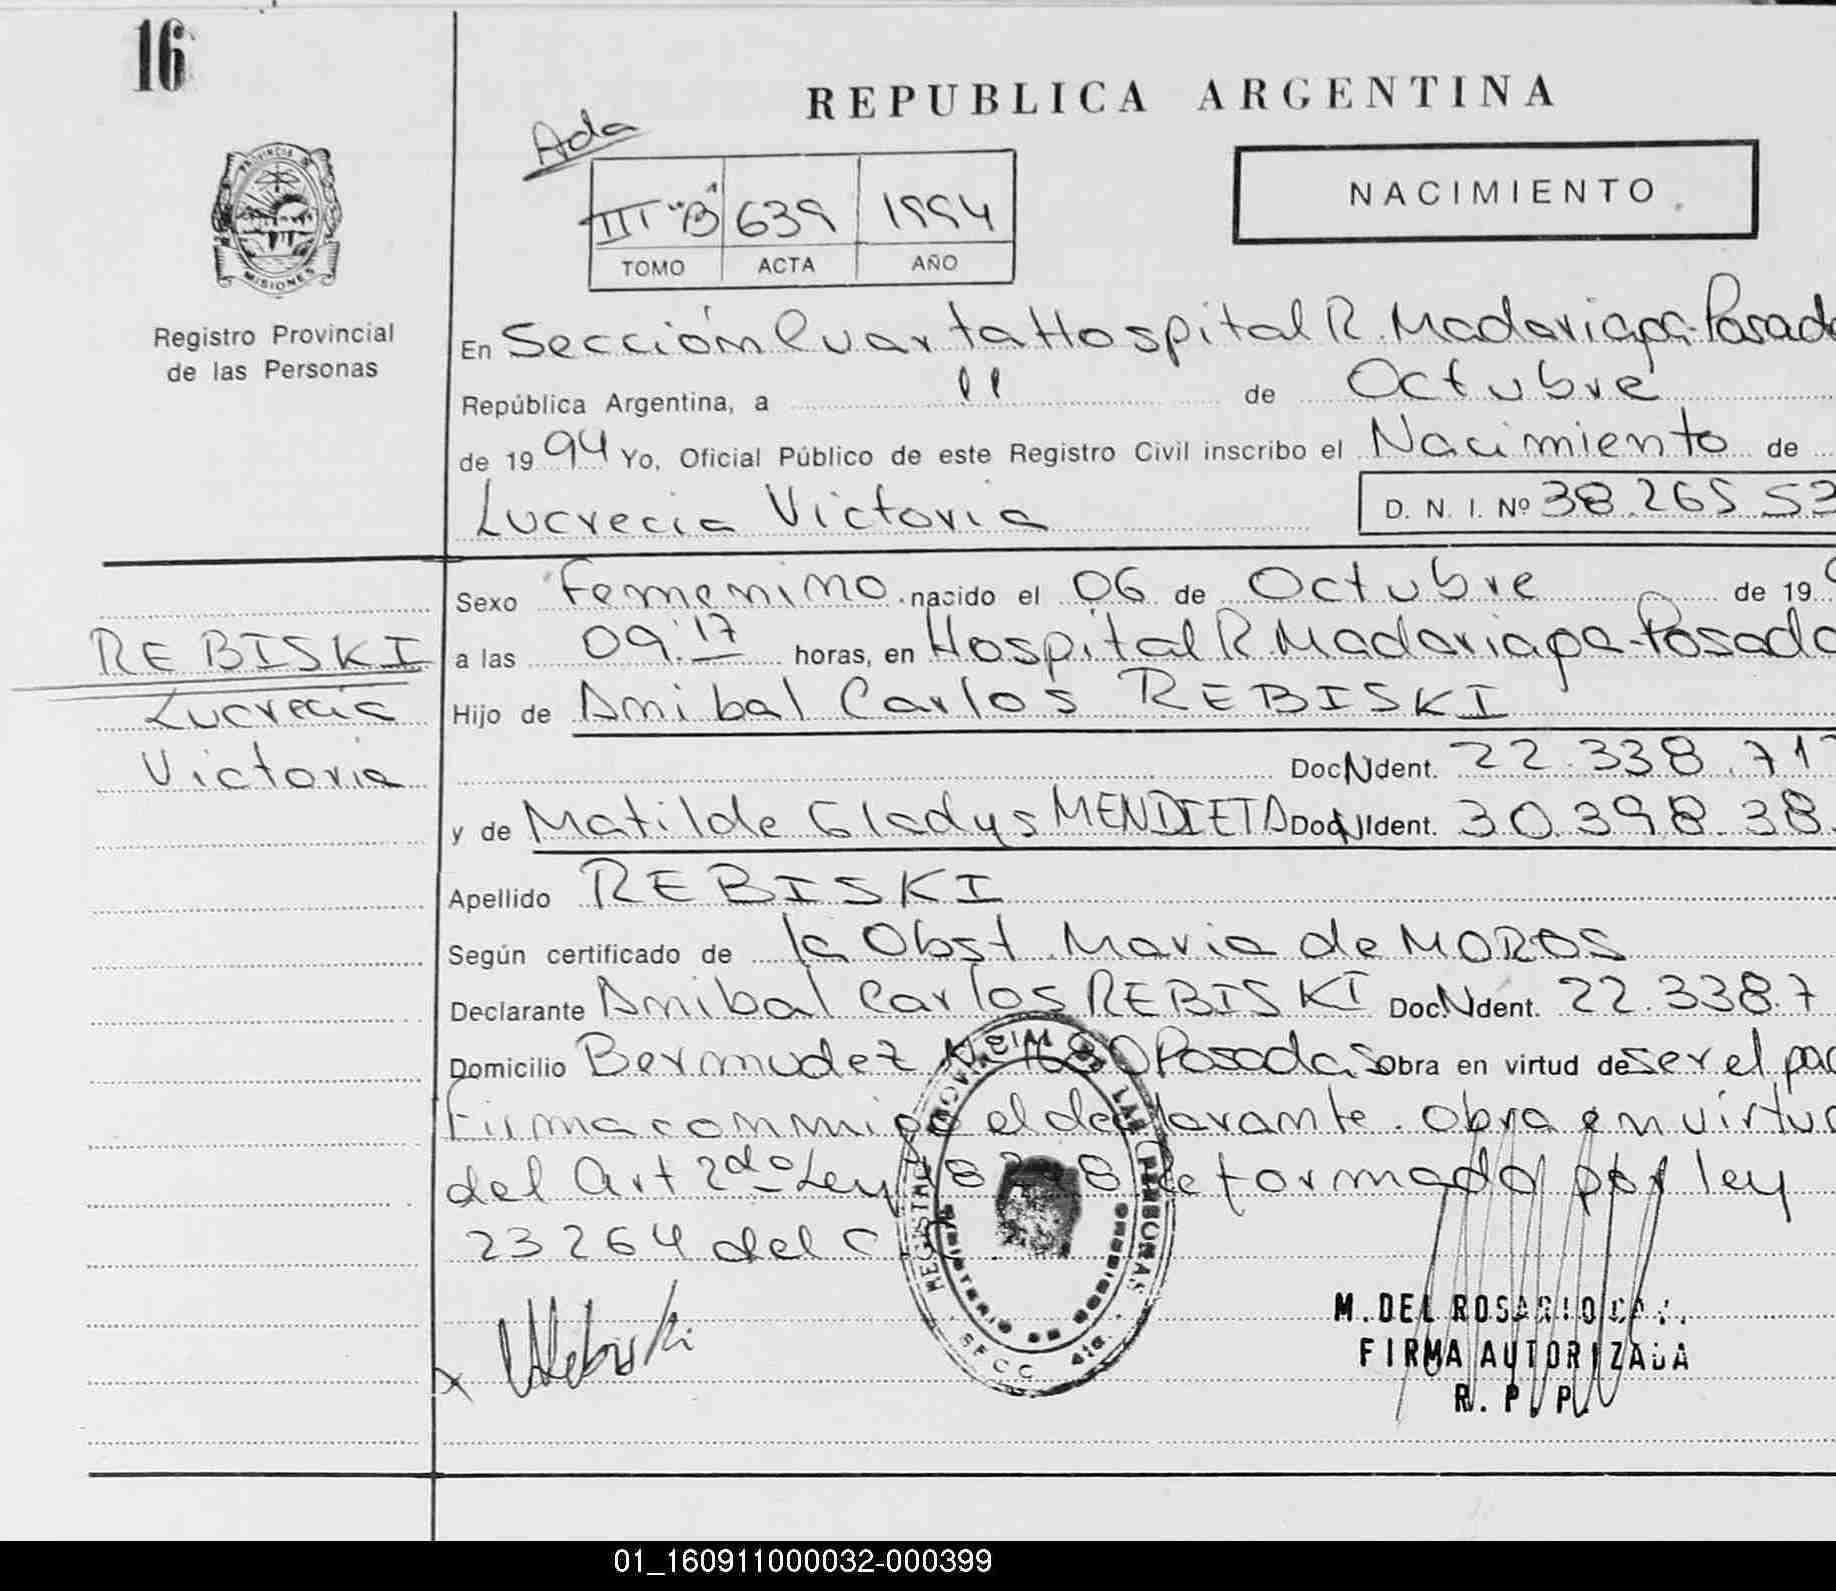 16
REPUBLICA ARGENTINA
Ada
III "B" 639 1994
TOMO ACTA AÑO
NACIMIENTO
PROVINCIA DE
MISIONES
Registro Provincial
de las Personas
En Sección Cuarta Hospital R. Madariaga-Posada
República Argentina, a 11 de Octubre
de 1994 Yo, Oficial Público de este Registro Civil inscribo el Nacimiento de
Lucrecia Victoria D. N. I. Nº 38.265.53
Sexo Femenino nacido el 06 de Octubre de 19
a las 09:17 horas, en Hospital R. Madariaga-Posada
Hijo de Anibal Carlos REBISKI
Doc N Ident. 22.338.71
y de Matilde Gladys MENDIETA Doc N Ident. 30.398.38
Apellido REBISKI
Según certificado de la Obst. Maria de MOROS
Declarante Anibal Carlos REBISKI Doc N Ident. 22.338.7
Domicilio Bermudez N 1680 Posadas obra en virtud de ser el pad
Firma conmigo el declarante. Obra en virtud
del Art 2do Ley 18248 Reformado por ley
23264 del C
REBISKI
Lucrecia
Victoria
REGISTRO PROVINCIAL DE LAS PERSONAS
MINISTERIO DE GOBIERNO
SECC 4ta.
M. DEL ROSARIO
FIRMA AUTORIZADA
R. P. P.
01_160911000032-000399